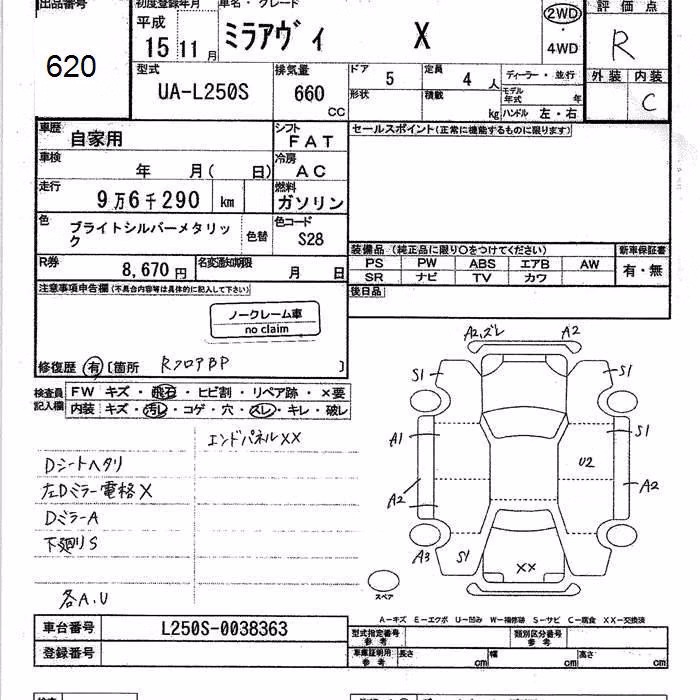 出品番号 初度登録年月 車名・グレード 2WD 評価点
620 平成 15年 11月 ミラアヴィ X ・ 4WD R
型式 排気量 ドア 5 定員 4人 ディーラー・並行 外装 内装
UA-L250S 660 CC 形状 積載 kg モデル年式 年 ハンドル 左・右 C
車歴 自家用 シフト FAT セールスポイント(正常に機能するものに限ります)
車検 年 月( 日) 冷房 AC
走行 9万6千290 km 燃料 ガソリン
色 ブライトシルバーメタリック 色替 色コード S28
装備品 (純正品に限り〇をつけてください) 新車保証書
PS PW ABS エアB AW 有・無
SR ナビ TV カワ
R券 8,670円 名変通知期限 月 日
後日品
注意事項申告欄(不具合内容等は具体的に記入して下さい)
ノークレーム車
no claim
修復歴 有 [箇所 RフロアBP ]
検査員記入欄 FW キズ・飛石・ヒビ割・リペア跡・×要
内装 キズ・汚レ・コゲ・穴・スレ・キレ・破レ
エンドパネルXX
Dシートヘタリ
左Dミラー電格X
DミラーA
下廻りS
各A.U
A2,ズレ A2
S1 S1
A1 S1
U2
A2 A2
A3 S1
XX
スペア
A-キズ E-エクボ U-凹み W-補修跡 S-サビ C-腐食 XX-交換済
車台番号 L250S-0038363 型式指定番号 参考 類別区分番号 参考
登録番号 車庫証明用 参考 長さ cm 幅 cm 高さ cm